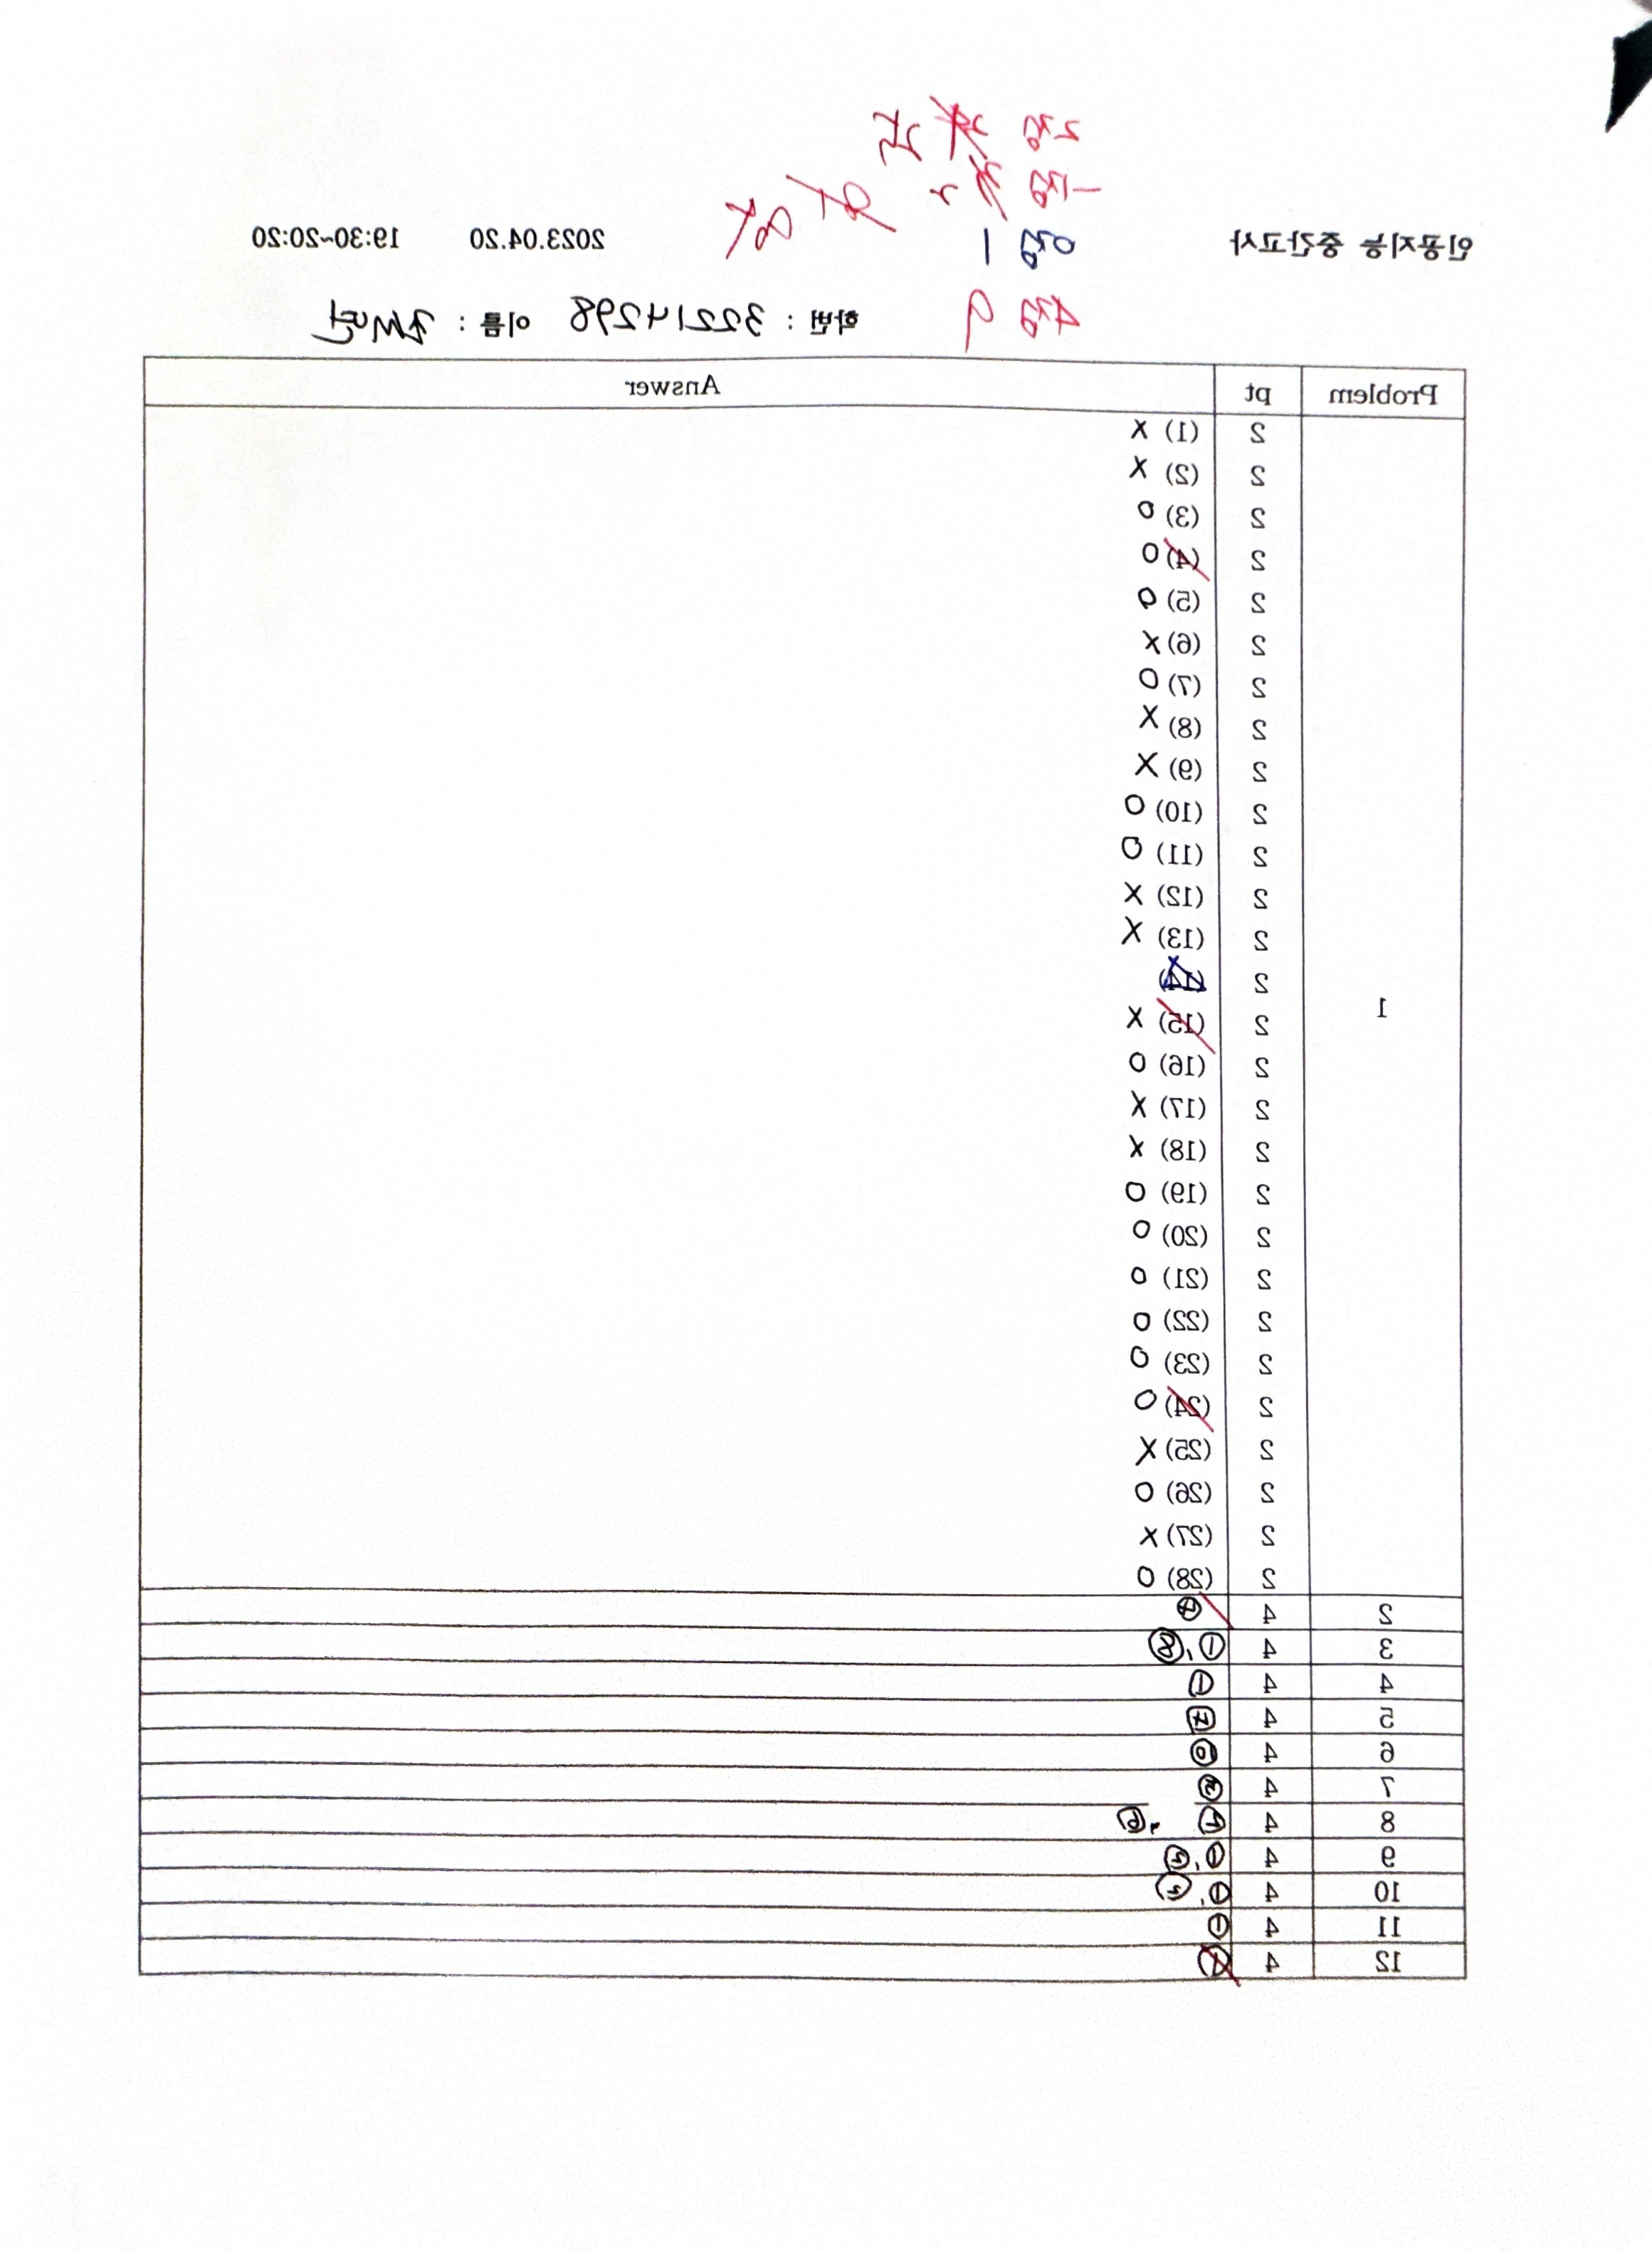 2점
-1점 2
인공지능 중간고사 0점 1 2023.04.20 19:30~20:20
4점 9 학번 : 32214298 이름 :
Problem pt Answer
1
2 (1) X
2 (2) X
2 (3) O
2 (4) O
2 (5) O
2 (6) X
2 (7) O
2 (8) X
2 (9) X
2 (10) O
2 (11) O
2 (12) X
2 (13) X
2 (14)
2 (15) X
2 (16) O
2 (17) X
2 (18) X
2 (19) O
2 (20) O
2 (21) O
2 (22) O
2 (23) O
2 (24) O
2 (25) X
2 (26) O
2 (27) X
2 (28) O
2 4
3 4 ①, ⑧
4 4 ①
5 4 ⑦
6 4
7 4
8 4
9 4 ①,
10 4 ①,
11 4 ①
12 4